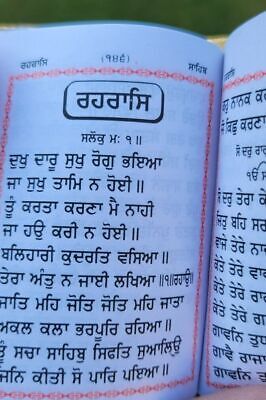 ਰਹਰਾਸਿ (੧੪੬) ਸਾਹਿਬ
ਰਹਰਾਸਿ
ਸਲੋਕੁ ਮਃ ੧॥
ਦੁਖੁ ਦਾਰੂ ਸੁਖੁ ਰੋਗੁ ਭਇਆ
ਜਾ ਸੁਖੁ ਤਾਮਿ ਨ ਹੋਈ॥
ਤੂੰ ਕਰਤਾ ਕਰਣਾ ਮੈ ਨਾਹੀ
ਜਾ ਹਉ ਕਰੀ ਨ ਹੋਈ॥
ਬਲਿਹਾਰੀ ਕੁਦਰਤਿ ਵਸਿਆ॥
ਤੇਰਾ ਅੰਤੁ ਨ ਜਾਈ ਲਖਿਆ॥੧॥ਰਹਾਉ॥
ਜਾਤਿ ਮਹਿ ਜੋਤਿ ਜੋਤਿ ਮਹਿ ਜਾਤਾ
ਅਕਲ ਕਲਾ ਭਰਪੂਰਿ ਰਹਿਆ॥
ਤੂੰ ਸਚਾ ਸਾਹਿਬੁ ਸਿਫਤਿ ਸੁਆਲਿਉ
ਜਿਨਿ ਕੀਤੀ ਸੋ ਪਾਰਿ ਪਇਆ॥
ਗੁਰੁ ਨਾਨਕ
ਜੋ ਕਿਛੁ ਕਰਣਾ
ਸੋ ਦਰੁ
ਸੋ ਦਰੁ ਤੇਰਾ
ਜਿਤੁ ਬਹਿ ਸਰਬ
ਵਾਜੇ ਤੇਰੇ ਨਾਦ
ਕੇਤੇ ਤੇਰੇ
ਕੇਤੇ ਤੇਰੇ
ਗਾਵਨਿ ਤੁਧਨੋ
ਗਾਵੈ ਰਾਜਾ
ਗਾਵਨਿ ਤੁਧਨੋ